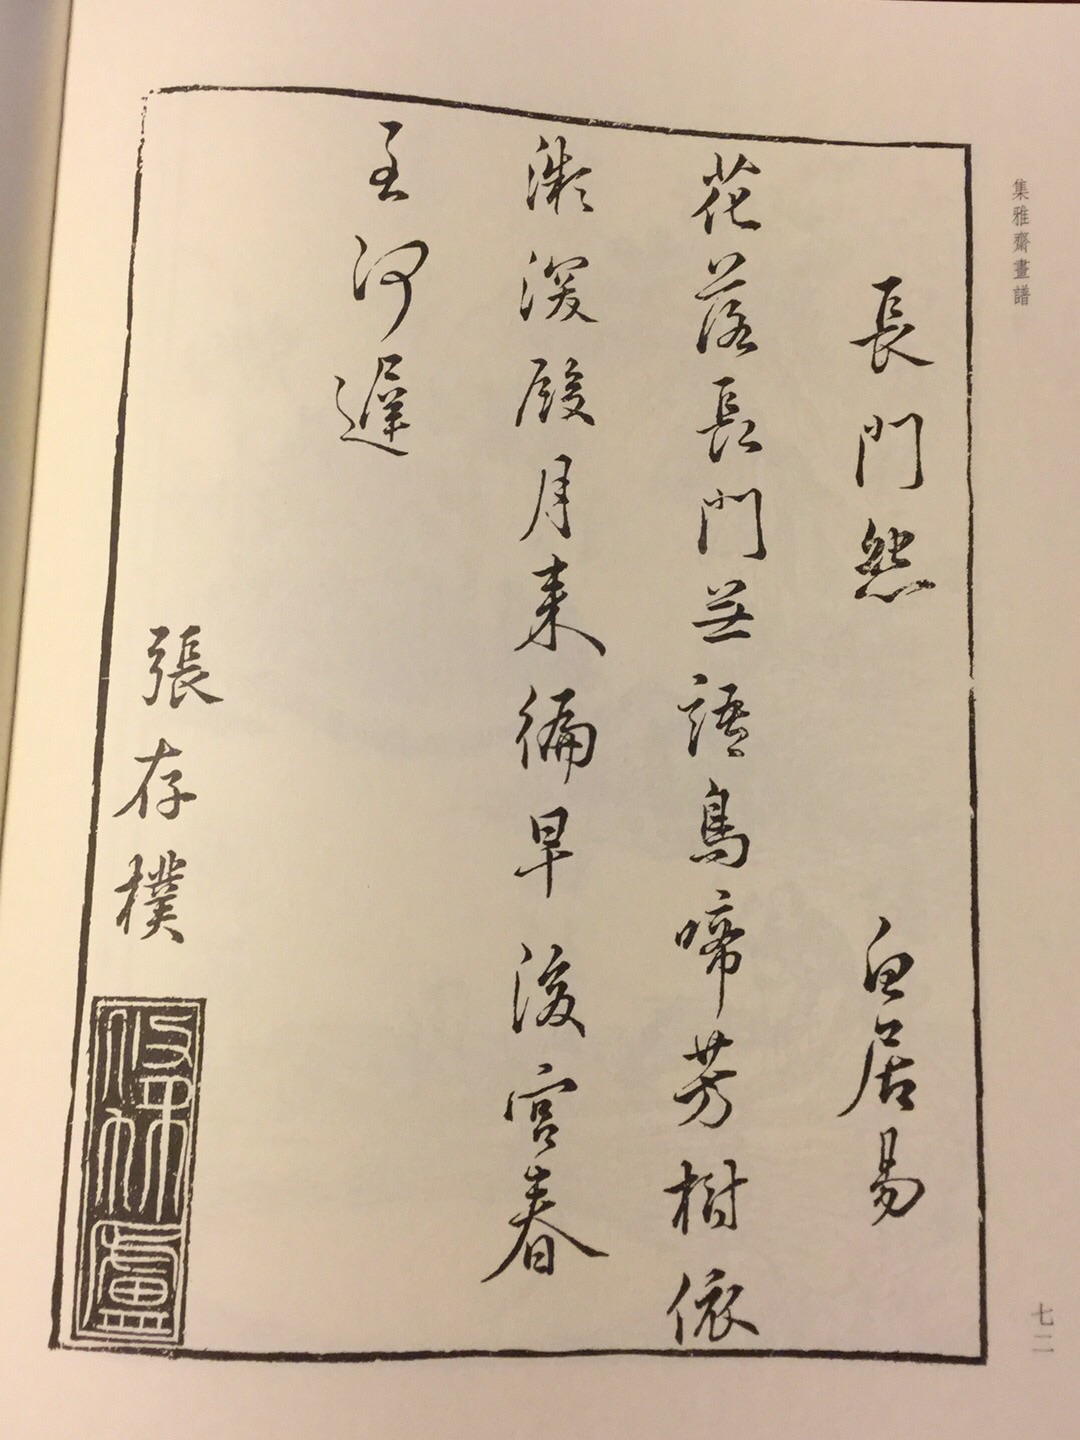 集雅齋畫譜
長門怨 白居易
花落長門無語鳥啼芳樹依
漸深殿月来偏早後宮春
至何遲
張存樸
七二